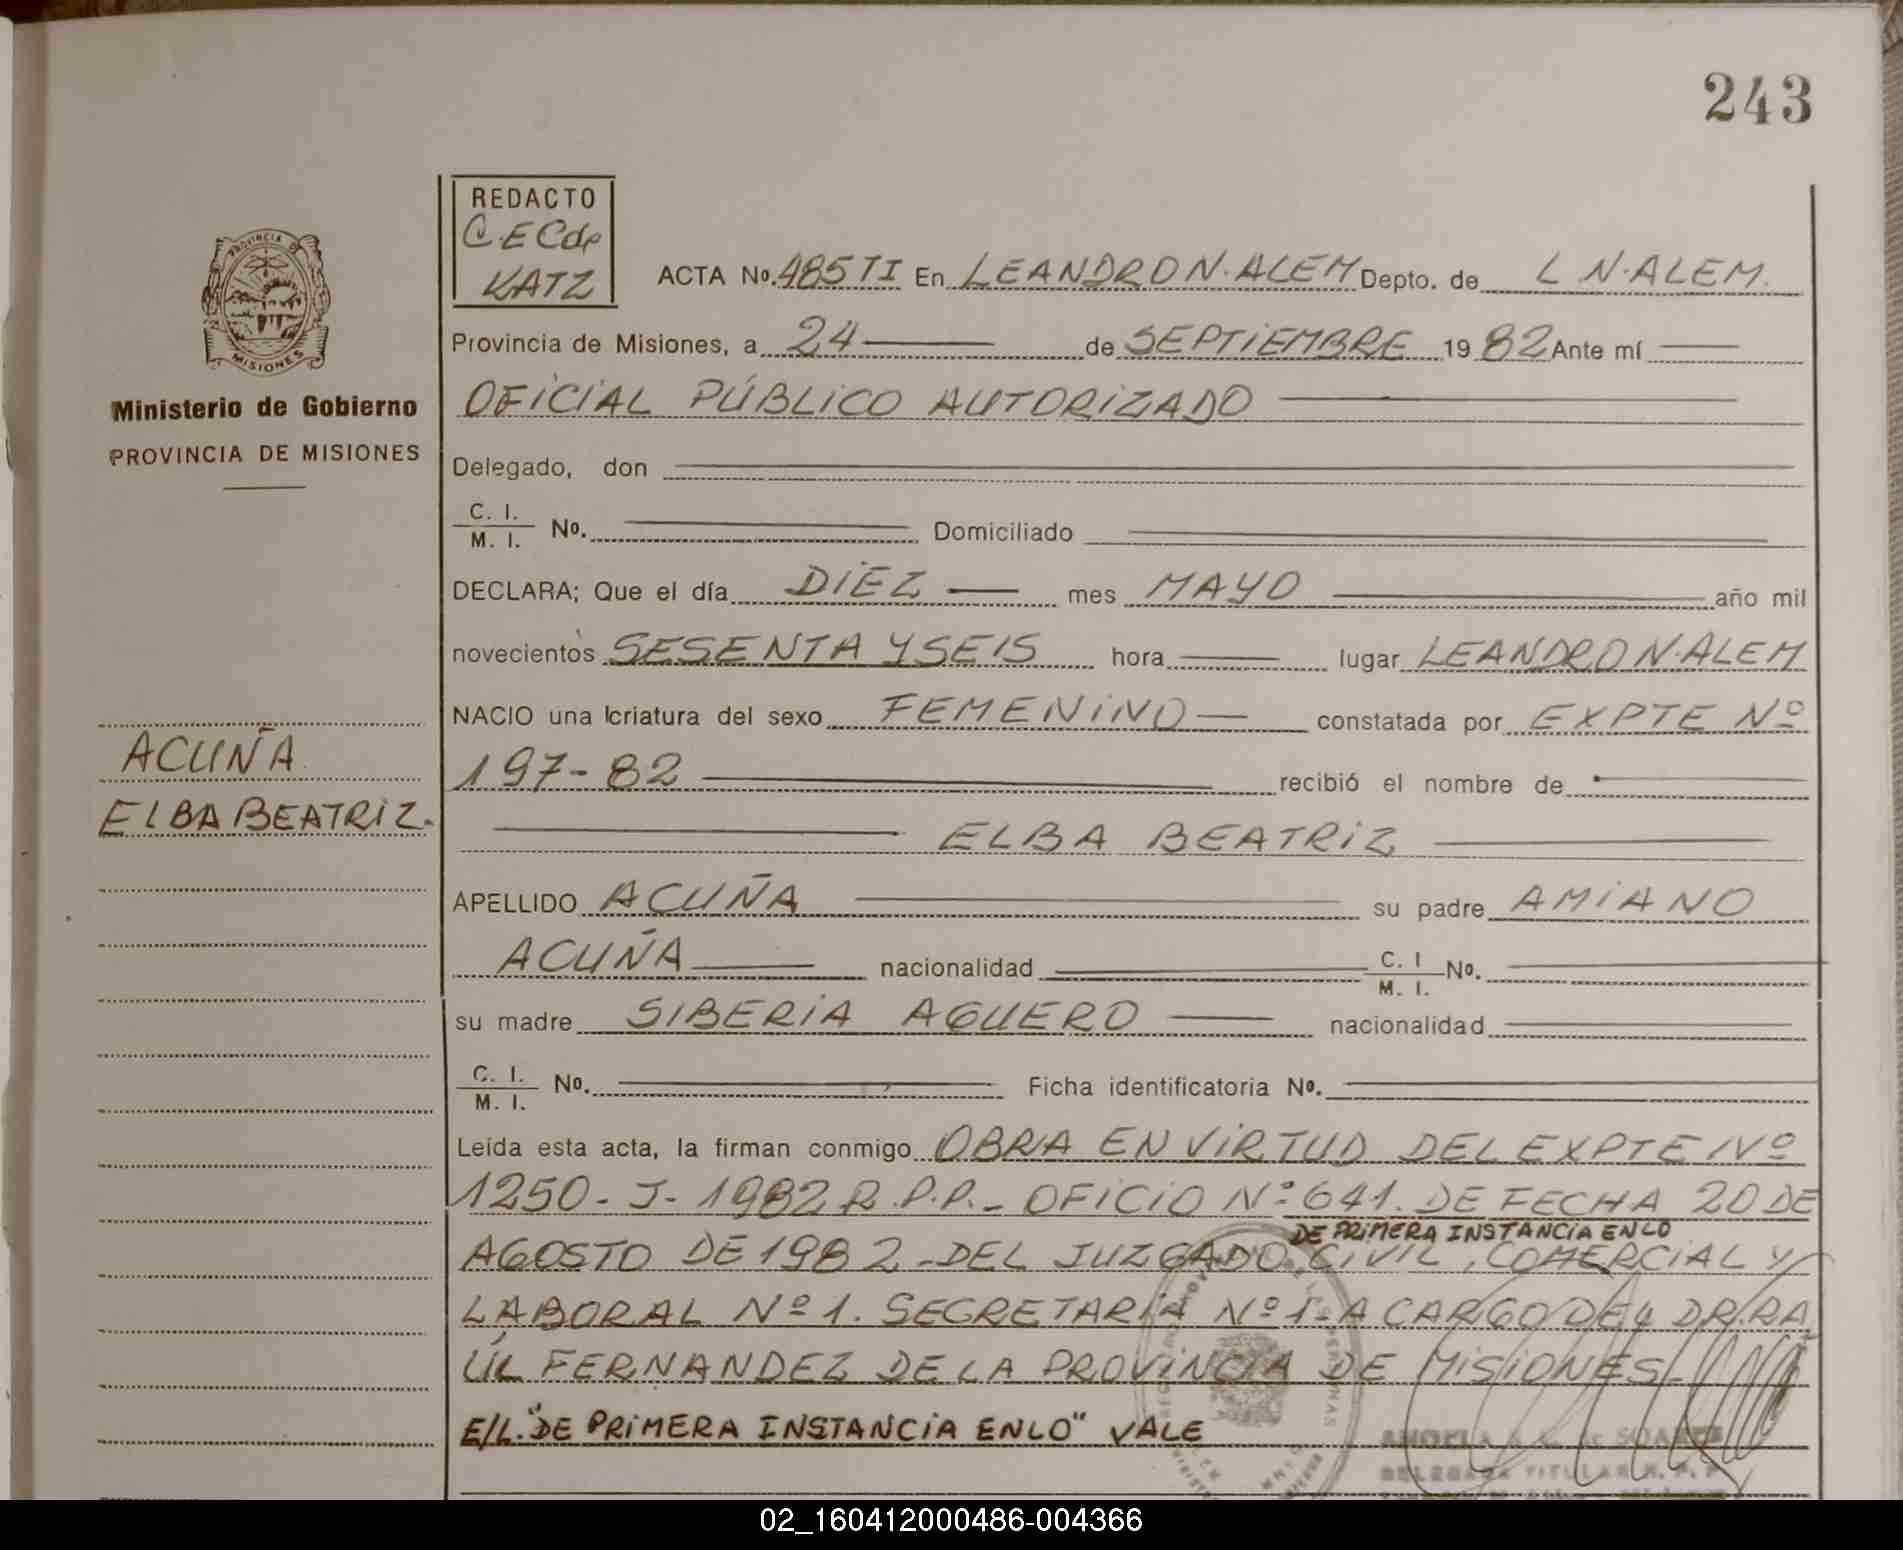 243
REDACTO
C.E.C de
KATZ
PROVINCIA DE
MISIONES
Ministerio de Gobierno
PROVINCIA DE MISIONES
ACUÑA
ELBA BEATRIZ.
ACTA Nº. 485 TI En LEANDRO N. ALEM Depto. de L N. ALEM.
Provincia de Misiones, a 24 de SEPTIEMBRE 19 82 Ante mí
OFICIAL PÚBLICO AUTORIZADO
Delegado, don
C. I.
M. I. Nº. Domiciliado
DECLARA; Que el día DIEZ mes MAYO año mil
novecientos SESENTA Y SEIS hora lugar LEANDRO N. ALEM
NACIO una criatura del sexo FEMENINO constatada por EXPTE Nº
197-82 recibió el nombre de
ELBA BEATRIZ
APELLIDO ACUÑA su padre AMIANO
ACUÑA nacionalidad C. I
M. I. Nº.
su madre SIBERIA AGUERO nacionalidad
C. I.
M. I. Nº. Ficha identificatoria Nº.
Leída esta acta, la firman conmigo OBRA EN VIRTUD DEL EXPTE Nº
1250-J-1982 R.P.P.- OFICIO Nº 641. DE FECHA 20 DE
DE PRIMERA INSTANCIA EN LO
AGOSTO DE 1982-DEL JUZGADO CIVIL, COMERCIAL Y
LABORAL Nº 1. SECRETARÍA Nº 1- A CARGO DEL DR. RA
ÚL FERNANDEZ DE LA PROVINCIA DE MISIONES-
E/L. "DE PRIMERA INSTANCIA EN LO" VALE
SOARES
DELEGADA TITULAR R. P. P.
02_160412000486-004366